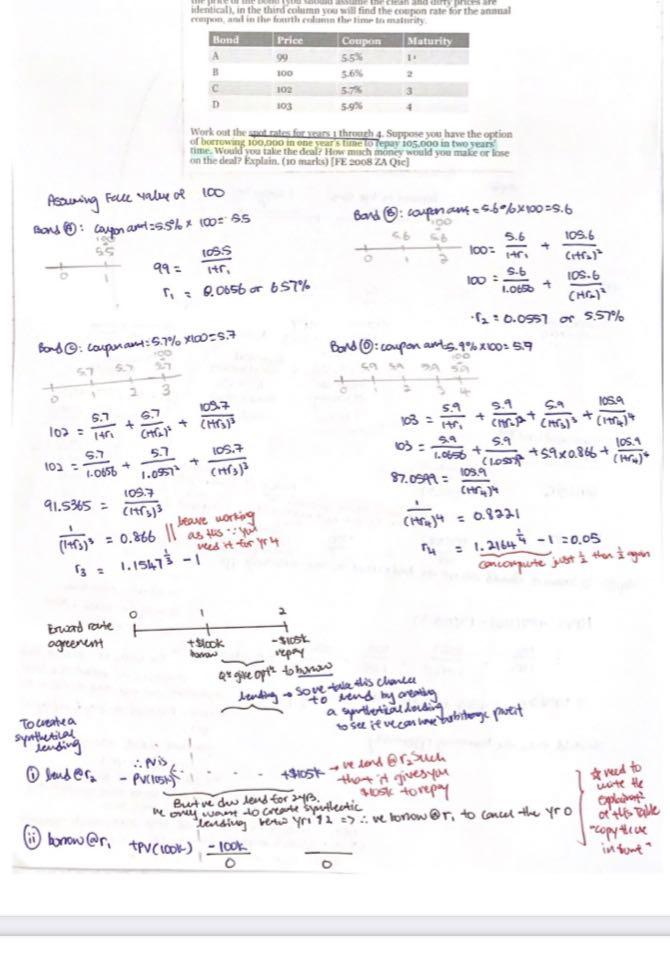 the price of the bond (you should assume the clean and dirty prices are
identical), in the third column you will find the coupon rate for the annual
coupon, and in the fourth column the time to maturity.
Bond Price Coupon Maturity
A 99 5.5% 1
B 100 5.6% 2
C 102 5.7% 3
D 103 5.9% 4
Work out the spot rates for years 1 through 4. Suppose you have the option
of borrowing 100,000 in one year's time to repay 105,000 in two years'
time. Would you take the deal? How much money would you make or lose
on the deal? Explain. (10 marks) [FE 2008 ZA Q1c]
Assuming Face value of 100
Bond Ⓐ: coupon amt = 5.5% × 100 = 5.5
100
5.5
0 1
99 = 105.5 / 1+r₁
r₁ = 0.0656 or 6.57%
Bond Ⓑ: coupon amt = 5.6% × 100 = 5.6
100
5.6 5.6
0 1 2
100 = 5.6 / 1+r₁ + 105.6 / (1+r₂)²
100 = 5.6 / 1.0656 + 105.6 / (1+r₂)²
r₂ = 0.0557 or 5.57%
Bond Ⓒ: coupon amt = 5.7% × 100 = 5.7
100
5.7 5.7 5.7
0 1 2 3
102 = 5.7 / 1+r₁ + 5.7 / (1+r₂)² + 105.7 / (1+r₃)³
102 = 5.7 / 1.0656 + 5.7 / 1.0557² + 105.7 / (1+r₃)³
91.5365 = 105.7 / (1+r₃)³
1 / (1+r₃)³ = 0.866
leave working
as this ∵ you
need it for yr 4
r₃ = 1.1547^⅓ - 1
Bond Ⓓ: coupon amt 5.9% × 100 = 5.9
100
5.9 5.9 5.9 5.9
0 1 2 3 4
103 = 5.9 / 1+r₁ + 5.9 / (1+r₂)² + 5.9 / (1+r₃)³ + 105.9 / (1+r₄)⁴
103 = 5.9 / 1.0656 + 5.9 / (1.0557)² + 5.9 × 0.866 + 105.9 / (1+r₄)⁴
87.0599 = 105.9 / (1+r₄)⁴
1 / (1+r₄)⁴ = 0.8221
r₄ = 1.2164^¼ - 1 = 0.05
can compute just ½ then ½ again
0 1 2
Forward rate
agreement
+$100k
borrow
-$105k
repay
Qⁿ give optⁿ to borrow
lending → so we take this chance
to lend by creating
a synthetical lending
to see if we can have arbitrage profit
To create a
synthetical
lending
∴ PV is
ⓘ lend @ r₂ - PV(105k) +$105k → we lend @ r₂ such
that it gives you
$105k to repay
But we don lend for 2 yrs.
we only want to create synthectic
lending betw yr 1 & 2 => ∴ we borrow @ r₁ to cancel the yr 0
(ii) borrow @ r₁ +PV(100k) -100k
0 0
☆ need to
write the
explanatⁿ
of this table
"copy these
in front"